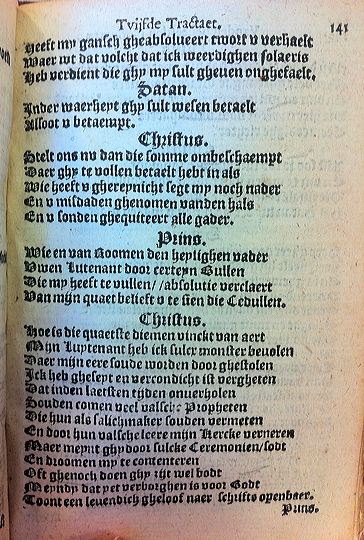 Tvijfde Tractaet. 141
Heeft my gansch gheabsolueert twort v verhaelt
Waer wt dat volcht dat ick weerdighen solaeris
Heb verdient die ghy my sult gheuen onghefaelt.
Satan.
Inder waerheyt ghy sult wesen betaelt
Alsoot v betaempt.
Christus.
Stelt ons nv dan die somme onbeschaempt
Daer ghy te vollen betaelt hebt in als
Wie heeft v ghereynicht segt my noch nader
En v misdaden ghenomen vanden hals
En v sonden ghequiteert alle gader.
Prins.
Wie en van Roomen den heylighen vader
Vwen Lutenant door certeyn Bullen
Die my heeft te vullen//absolutie verclaert
Van mijn quaet belieft v te sien die Cedullen.
Christus.
Hoe is die quaetste diemen vinckt van aert
Mijn Luytenant heb ick sulcx monster beuolen
Daer mijn eere soude worden door ghestolen
Ick heb gheseyt en vercondicht ist vergheten
Dat inden laetsten tijden onuerholen
Souden comen veel valsche Propheten
Die hun als salichmaker souden vermeten
En door hun valsche leere mijn Kercke verneren
Maer meynt ghy door sulcke Ceremonien/sodt
En droomen my te contenteren
Oft ghenoch doen ghy zijt wel bodt
Meyndy dat yet verborghen is voor Godt
Toont een leuendich gheloof naer schrifts openbaer.
Prins.